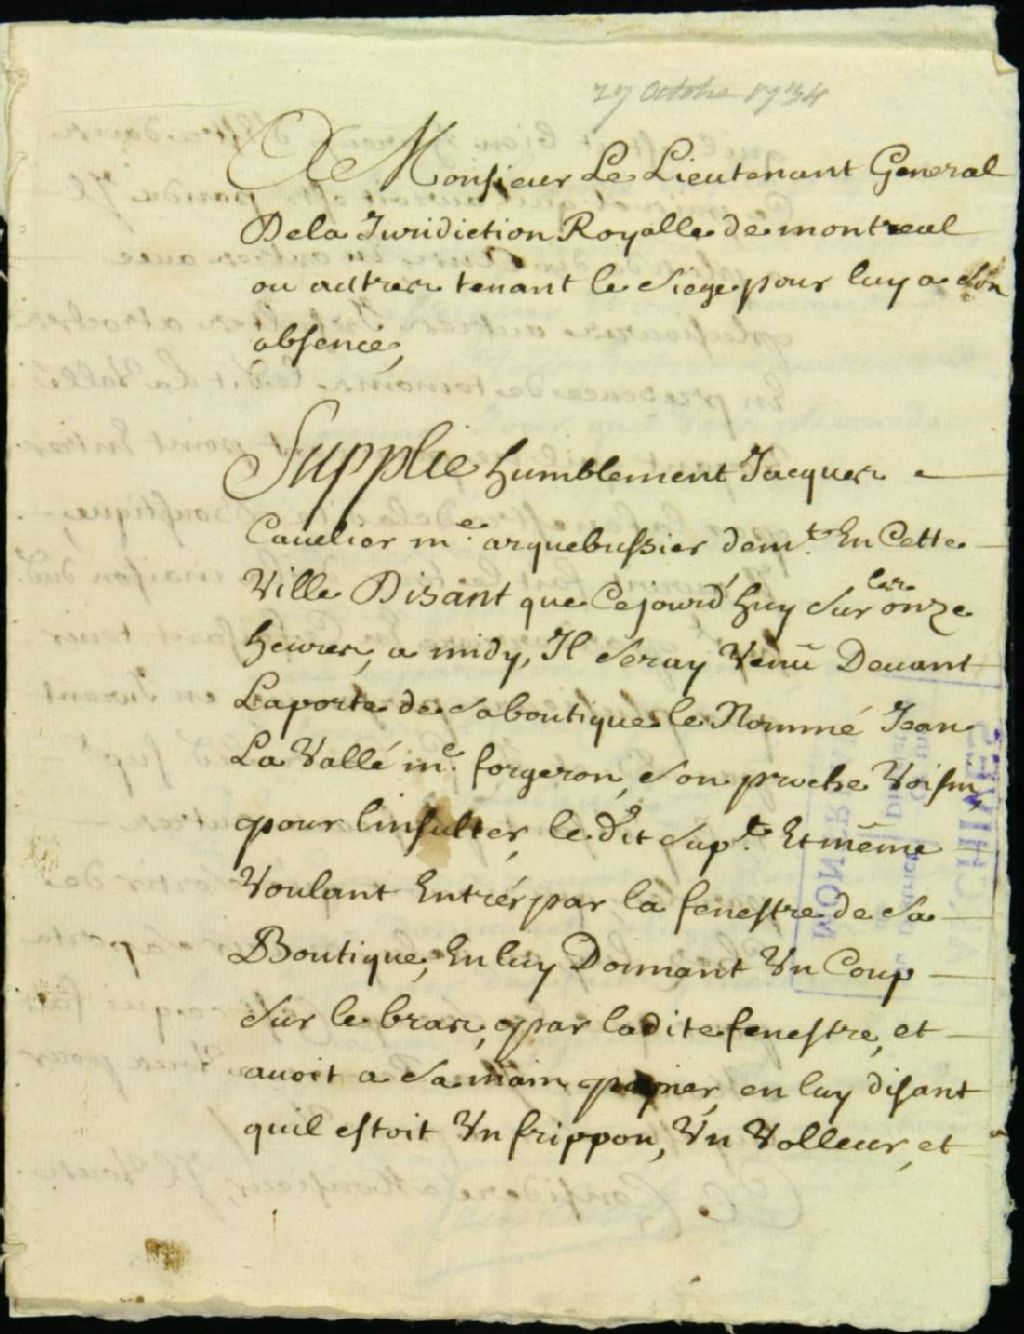 27 Octobre 1734
A Monsieur Le Lieutenant General
Dela Juridiction Royalle de montreal
ou autres tenant le siege pour luy a son
absence,
Supplie humblement Jacques
Cauelier m.e arquebussier dem.t En Cette
Ville Disant que Cejourd'huy sur les onze
heures, a midy, Il seray Venū Deuant
Laporte de saboutique le Nommé Jean
La Vallé m.e forgeron, son proche Voisin,
pour linsulter, le dit sup.t Et même
Voulant Entrér par la fenestre de sa
Boutique, En luy Donnant Un Coup
sur le bras, par ladite fenestre, et
auoit a sa main en luy disant
quil estoit Un frippon, Un Volleur, et
MONTREAL
ARCHIVES